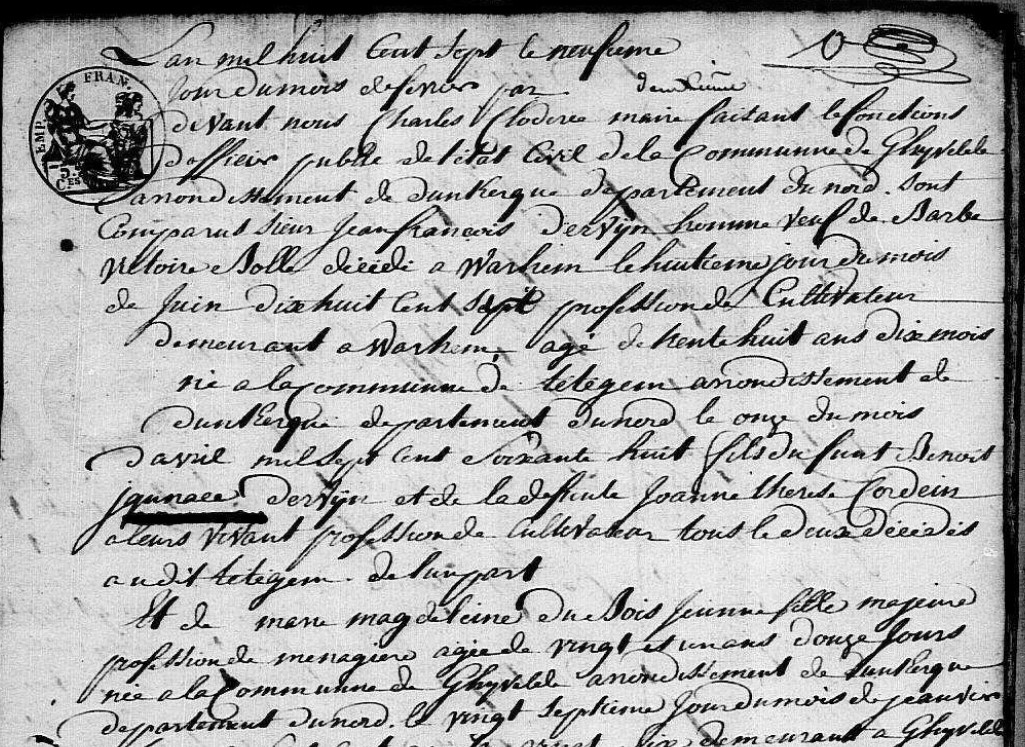 L'an mil huit Cent Sept le neufieme
Jour du mois de fevrier par
devant nous Charles Cloderee maire faisant le fonctions
d'officier publie de l'état Civil de la Communne de Ghyvelde
arrondissement de dunkerque departement du nord. Sont
Comparus Sieur Jean françois dervyn homme veuf de Barbe
Victoire Bolle décédé a Warhem le huitieme jour du mois
de Juin dix huit Cent Sept profession de Cultivateur
demeurant a Warhem, agé de trente huit ans dix mois
né a la Communne de tetegem arrondissement de
dunkerque departement du nord le onze du mois
d'avril mil Sept Cent Soixante huit fils du funt Benoit
dervyn et de la deffunte Joanne therese Cordein
a leurs vivant profession de Cultivateur tous le deux décédés
audit tetegem. de l'un part
Et de marie magdeleine du Bois Jeunne fille majeure
profession de menagiere agée de vingt et un ans douze Jours
née a la Communne de Ghyvelde arrondissement de dunkerque
departement du nord. le vingt Septieme Jour du mois de jeanvier
vingt Six demeurant a Ghyvelde
FRAN
EMP.
CES